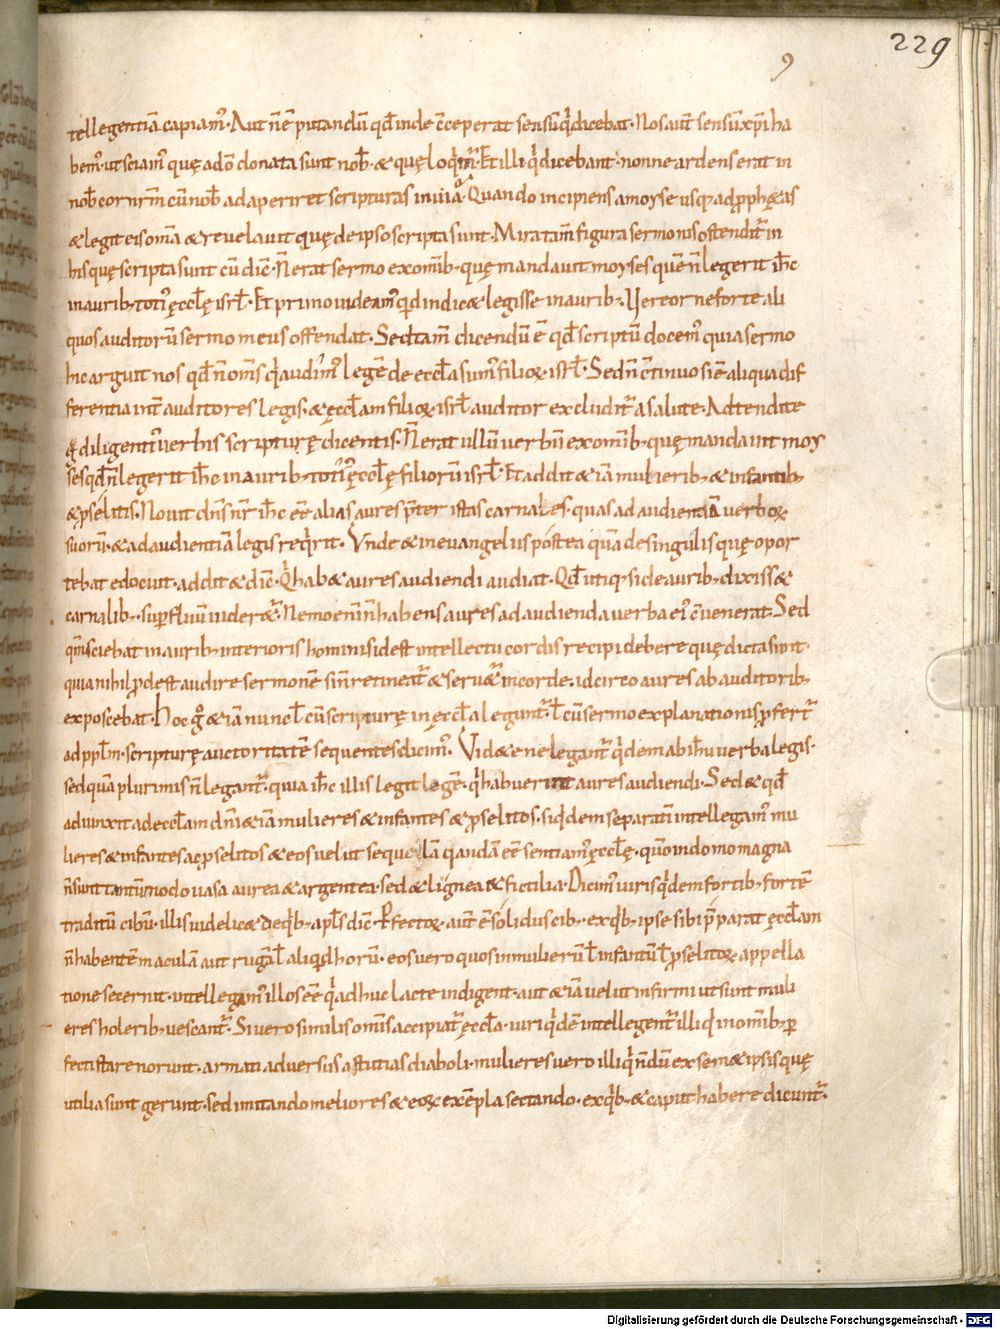 229
9
tellegentiā capiam᷒. Aut nē putandū qđ inde c̄ceperat sensū q̇ dicebat. Nos aut̄ sensū xp̄i ha
bem᷒. ut sciam᷒ quę a dō donata sunt nob̄. & quę loq̇m̄r. Et illi q̇ dicebant. nonne ardens erat in
nob̄ cor nr̄m cū nob̄ adaperiret scripturas in uia. Quando incipiens a moyse usq; ad ꝓph&as
& legit eis om̄a & reuelauit quę de ipso scripta sunt. Mira tam̄ figura sermonis ostendit̄ in
his quę scripta sunt cū dic̄. N̄ erat sermo ex omīb; quę mandauit moyses quē n̄ legerit ih̄c
in aurib; toti᷒ ęccłę isrł. Et primo uideam᷒ qͥd indic& legisse in aurib;. Vereor ne forte ali
quos auditorū sermo meus offendat. Sed tam̄ dicendū ē qđ scriptū docem᷒ quia sermo
hic arguit nos qđ n̄ om̄s q̇ audim᷒ legē de eccła sum᷒ filioꝝ isrł. Sed n̄ c̄tinuo si ē aliqua dif
ferentia int̄ auditores legis. & ęccłam filioꝝ isrł auditor excludit̄ a salute. Adtendite
g̊ diligenti᷒ uerbis scripturę dicentis. N̄ erat ullū uerbū ex omīb; quę mandauit moy
ses qđ n̄ legerit ih̄c in aurib; toti᷒ ęccłę filiorū isrł. Et addit &iā mulierib; & infantib;
& ꝓselitis. Nouit dn̄s nr̄ ih̄c eē alias aures p̄ter istas carnales. quas ad audientiā uerboꝝ
suorū. & ad audientiā legis req̇rit. Vnde & in euangeliis postea quā de singulis quę opor
tebat edocuit. addit & dic̄. Q̇ hab& aures audiendi audiat. Qđ utiq; si de aurib; dixiss&
carnalib;. suꝑfluū uider&̄. Nemo enī n̄ habens aures ad audienda uerba ei᷒ c̄uenerat. Sed
qm̄ sciebat in aurib; interioris hominis id est intellectu cordis recipi debere quę dicta sunt.
quia nihil ꝓdest audire sermonē si n̄ retineat̄ & seru&̄ in corde. idcirco aures ab auditorib;
exposcebat. Hoc g̊ &iā nunc ł cū scripturę in ęccła legunt̄. ł cū sermo explanationis ꝓfert̄
ad ppłm. scripturę auctoritatē sequentes dicim᷒. Vid&e ne legant̄ q̇dem ab ih̄u uerba legis.
sed quā plurimis n̄ legant̄. quia ih̄c illis legit legē. q̇ habuerint aures audiendi. Sed & qđ
adiunxit ad eccłam dn̄i &iā mulieres & infantes & ꝓselitos. siq̇dem separatī intellegam᷒ mu
lieres & infantes ac ꝓselitos & eos uelut sequelā quandā eē sentiam᷒ ęccłę. quō in domo magna
n̄ sunt tantū modo uasa aurea & argentea. sed & lignea & fictilia. Dicim᷒ uiris q̇dem fortib; fortē
traditū cibū. illis uidelic& de q̇b; apłs dic̄. Ꝑfectoꝝ aut̄ ē solidus cib; ex q̇b; ipse sibi p̄parat ęccłam
n̄ habentem maculā aut rugā ł aliqͥd horū. eos uero quos in mulierū ł infantū ł ꝓselitoꝝ appella
tione secernit. intellegam᷒ illos eē q̇ adhuc lacte indigent. aut &iā uelut infirmi ut sunt muli
eres holerib; uescant̄. Si uero simul is om̄is accipiat̄ ęccła. uiri q̇dē intellegent̄ illi q̇ in omīb; ꝑ
fecti stare norunt. armati aduersus astutias diaboli. mulieres uero illi q̇ nōdū ex semetipsis quę
utilia sunt gerunt. sed imitando meliores & eoꝝ exēpla sectando. ex q̇b; & caput habere dicunt̄.
Digitalisierung gefördert durch die Deutsche Forschungsgemeinschaft - DFG